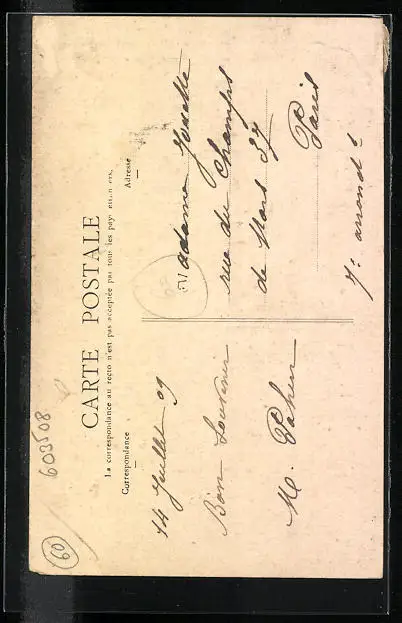 603508
60
CARTE POSTALE
La correspondance au recto n'est pas acceptée par tous les pays étrangers.
Correspondance
Adresse
14 Juillet 09
Bon Souvenir
M.
Madame
rue du Champs
de Mars 37
Paris
7e arrondt